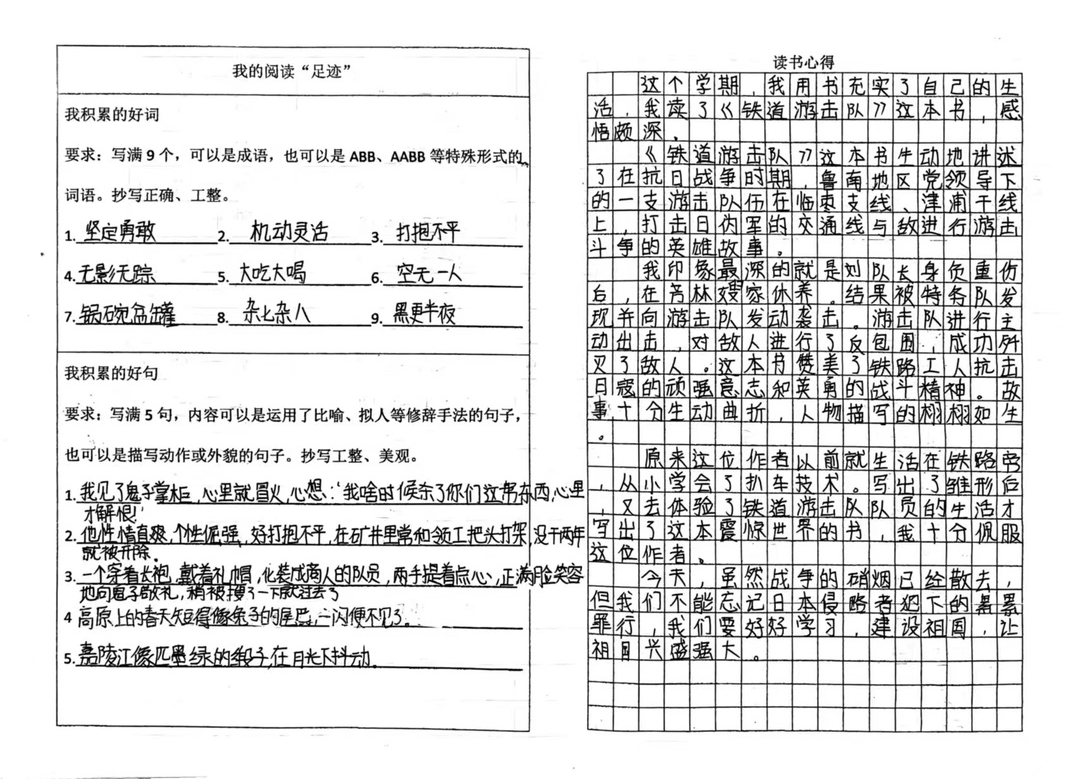 我的阅读“足迹”
我积累的好词
要求：写满 9 个，可以是成语，也可以是 ABB、AABB 等特殊形式的
词语。抄写正确、工整。
1. 坚定勇敢 2. 机动灵活 3. 打抱不平
4. 无影无踪 5. 大吃大喝 6. 空无一人
7. 锅碗盆罐 8. 杂七杂八 9. 黑更半夜
我积累的好句
要求：写满 5 句，内容可以是运用了比喻、拟人等修辞手法的句子，
也可以是描写动作或外貌的句子。抄写工整、美观。
1. 我见了鬼子掌柜，心里就冒火，心想：‘我啥时候杀了你们这帮东西，心里
才解恨！’
2. 他性情直爽，个性倔强，好打抱不平，在矿井里常和领工把头打架，没干两年
就被开除。
3. 一个穿着长袍，戴着礼帽，化装成商人的队员，两手提着点心，正满脸笑容
地向鬼子敬礼，稍被搜了一下就过去了
4 高原上的春天短得像兔子的尾巴，一闪便不见了。
5. 嘉陵江像匹墨绿的缎子，在月光下抖动.
读书心得
这个学期，我用书充实了自己的生
活，我读了《铁道游击队》这本书，感
悟颇深。
《铁道游击队》这本书生动地讲述
了在抗日战争时期，鲁南地区党领导下
的一支游击队伍在临枣支线、津浦干线
上，打击日伪军的交通线与敌进行游击
斗争的英雄故事。
我印象最深的就是刘队长身负重伤
后，在芳林嫂家休养。结果被特务队发
现并向游击队发动袭击。游击队进行主
动出击，对敌人进行了反包围，成功歼
灭了敌人。这本书赞美了铁路工人抗击
日寇的顽强意志和英勇的战斗精神。故
事十分生动曲折，人物描写的栩栩如生
。
原来这位作者以前就生活在铁路旁
，从小学会了扒车技术。写出了雏形后
，又去体验了铁道游击队队员的生活才
写出了这本震惊世界的书，我十分佩服
这位作者。
今天，虽然战争的硝烟已经散去，
但我们不能忘记日本侵略者犯下的累累
罪行，我们要好好学习，建设祖国，让
祖国兴盛强大。